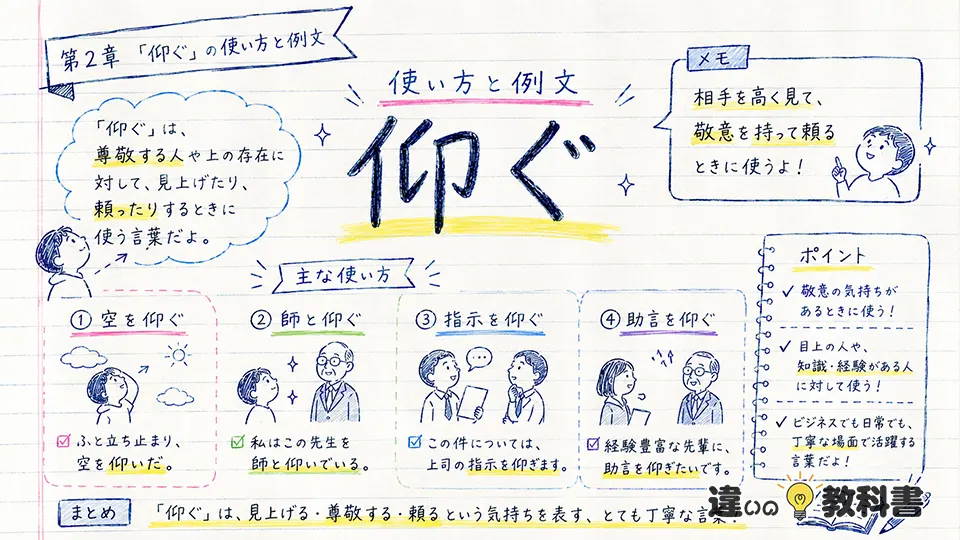 第2章 「仰ぐ」の使い方と例文
使い方と例文
仰ぐ
「仰ぐ」は、
尊敬する人や上の存在に
対して、見上げたり、
頼ったりするときに
使う言葉だよ。
メモ
相手を高く見て、
敬意を持って頼る
ときに使うよ！
主な使い方
① 空を仰ぐ
ふと立ち止まり、
空を仰いだ。
② 師と仰ぐ
私はこの先生を
師と仰いでいる。
③ 指示を仰ぐ
この件については、
上司の指示を仰ぎます。
④ 助言を仰ぐ
経験豊富な先輩に、
助言を仰ぎたいです。
ポイント
✓ 敬意の気持ちが
あるときに使う！
✓ 目上の人や、
知識・経験がある人
に対して使う！
✓ ビジネスでも日常でも、
丁寧な場面で活躍する
言葉だよ！
まとめ
「仰ぐ」は、見上げる・尊敬する・頼るという気持ちを表す、とても丁寧な言葉！
違いの教科書